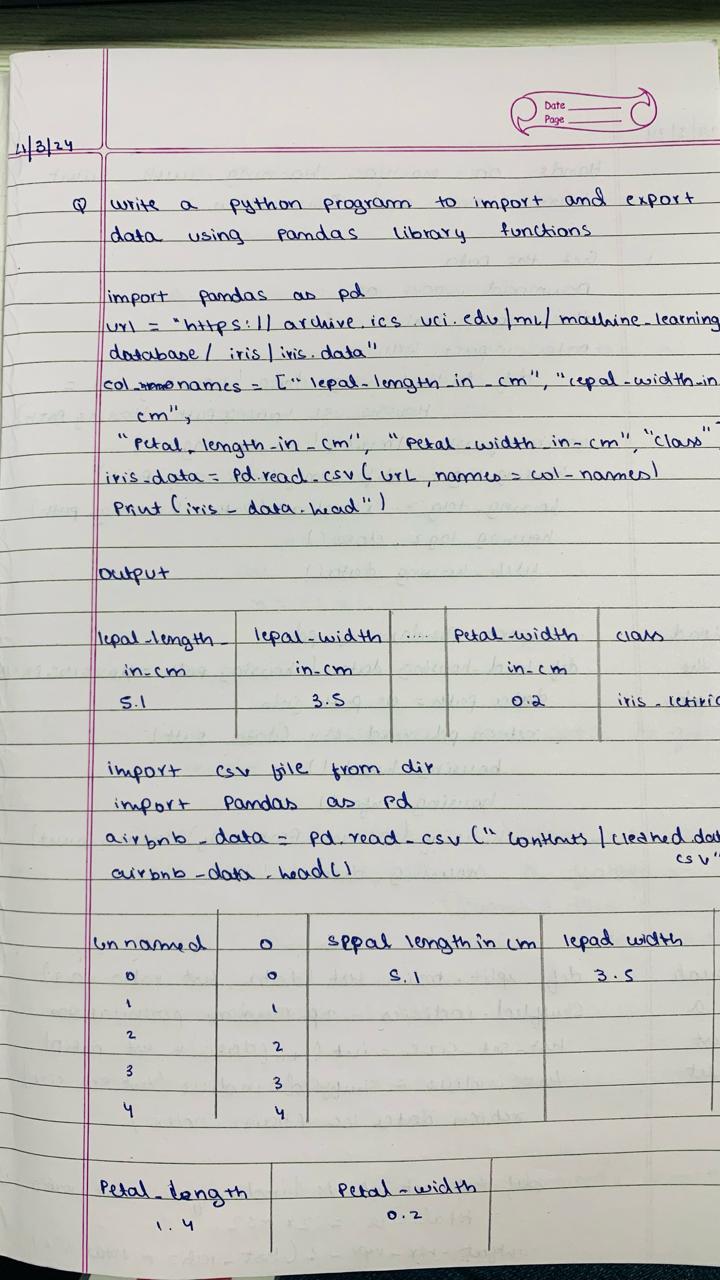 Date
Page
4/3/24
Q write a python program to import and export
data using pandas library functions
import pandas as pd
url = "https://archive.ics.uci.edu/ml/machine-learning
database/iris/iris.data"
col_names = ["lepal-length-in-cm", "cepal-width-in
cm",
"Petal-length-in-cm", "Petal-width-in-cm", "class"
iris-data = pd.read-csv(url, names = col-names)
Print (iris-data.head")
output
lepal-length- lepal-width ..... Petal-width class
in-cm in-cm in-cm
5.1 3.5 0.2 iris-
import csv file from dir
import Pandas as pd
airbnb-data = pd.read-csv("contents/cleaned.dat
csv"
airbnb-data.head()
Unnamed 0 sppal length in cm lepad width
0 0 5.1 3.5
1 1
2 2
3 3
4 4
Petal-length Petal-width
1.4 0.2